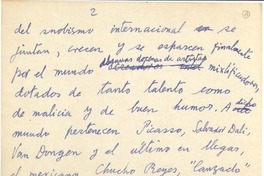 2
del snobismo internacional se
juntan, crecen y se esparcen finalmente
por el mundo algunas docenas de artistas mixtificadores,
dotados de tanto talento como
de malicia y de buen humor. A dicho
mundo pertenecen Picasso, Salvador Dali,
Van Dongen y el ultimo en llegar,
el mexicano Chucho Reyes, "lanzado"